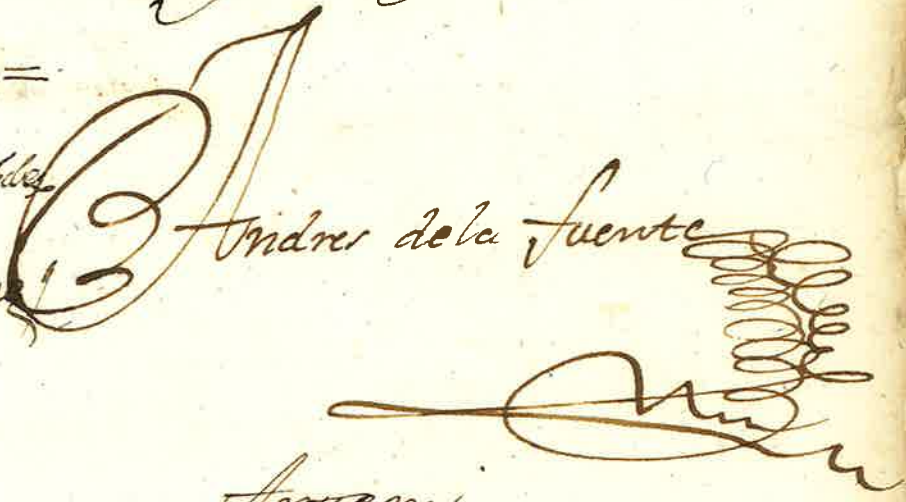 Andres de la fuente